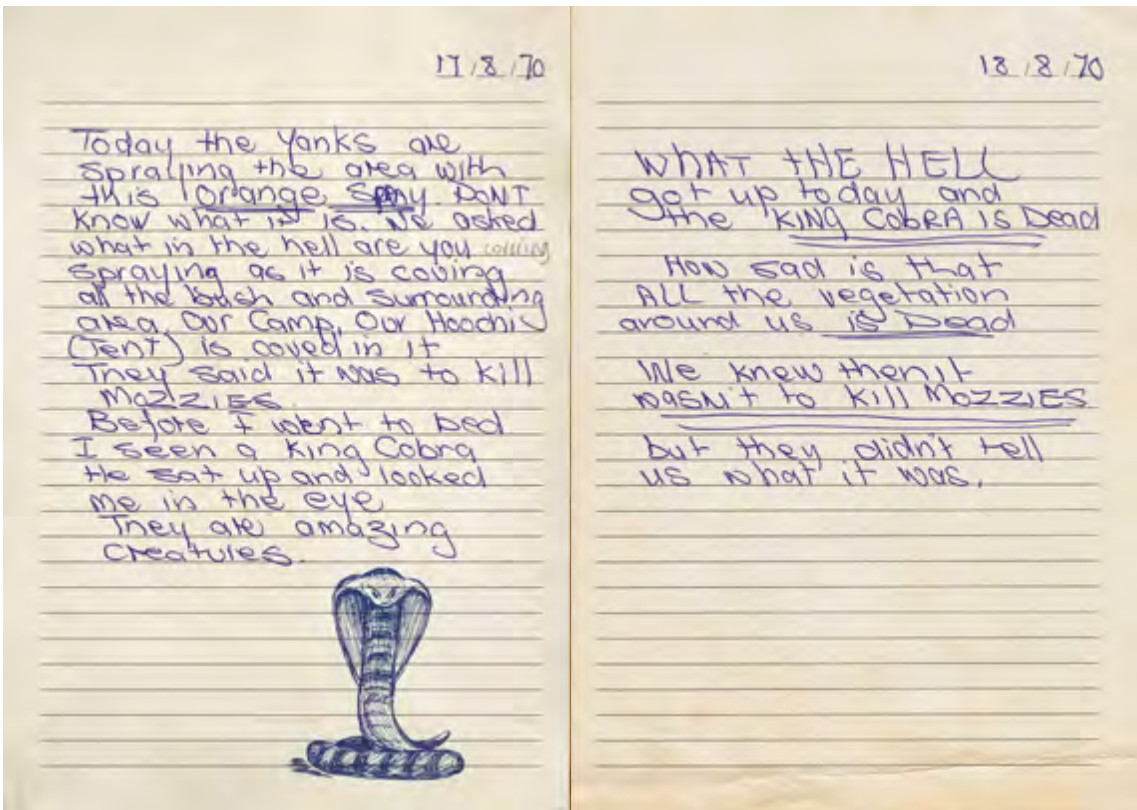 17/8/70
Today the Yanks are
Spraying the area with
this Orange Spray. DONT
Know what it is. We asked
what in the hell are you
Spraying as it is coving
all the bush and surrounding
area. Our Camp. Our Hoochi
(Tent) is coved in it
They said it was to kill
MOZZIES.
Before I went to bed
I seen a King Cobra
He sat up and looked
me in the eye
They are amazing
Creatures.
18/8/70
WHAT THE HELL
got up today and
the KING COBRA IS Dead
How sad is that
ALL the vegetation
around us is Dead
We knew then it
wasn't to KILL MOZZIES
but they didn't tell
us what it was.